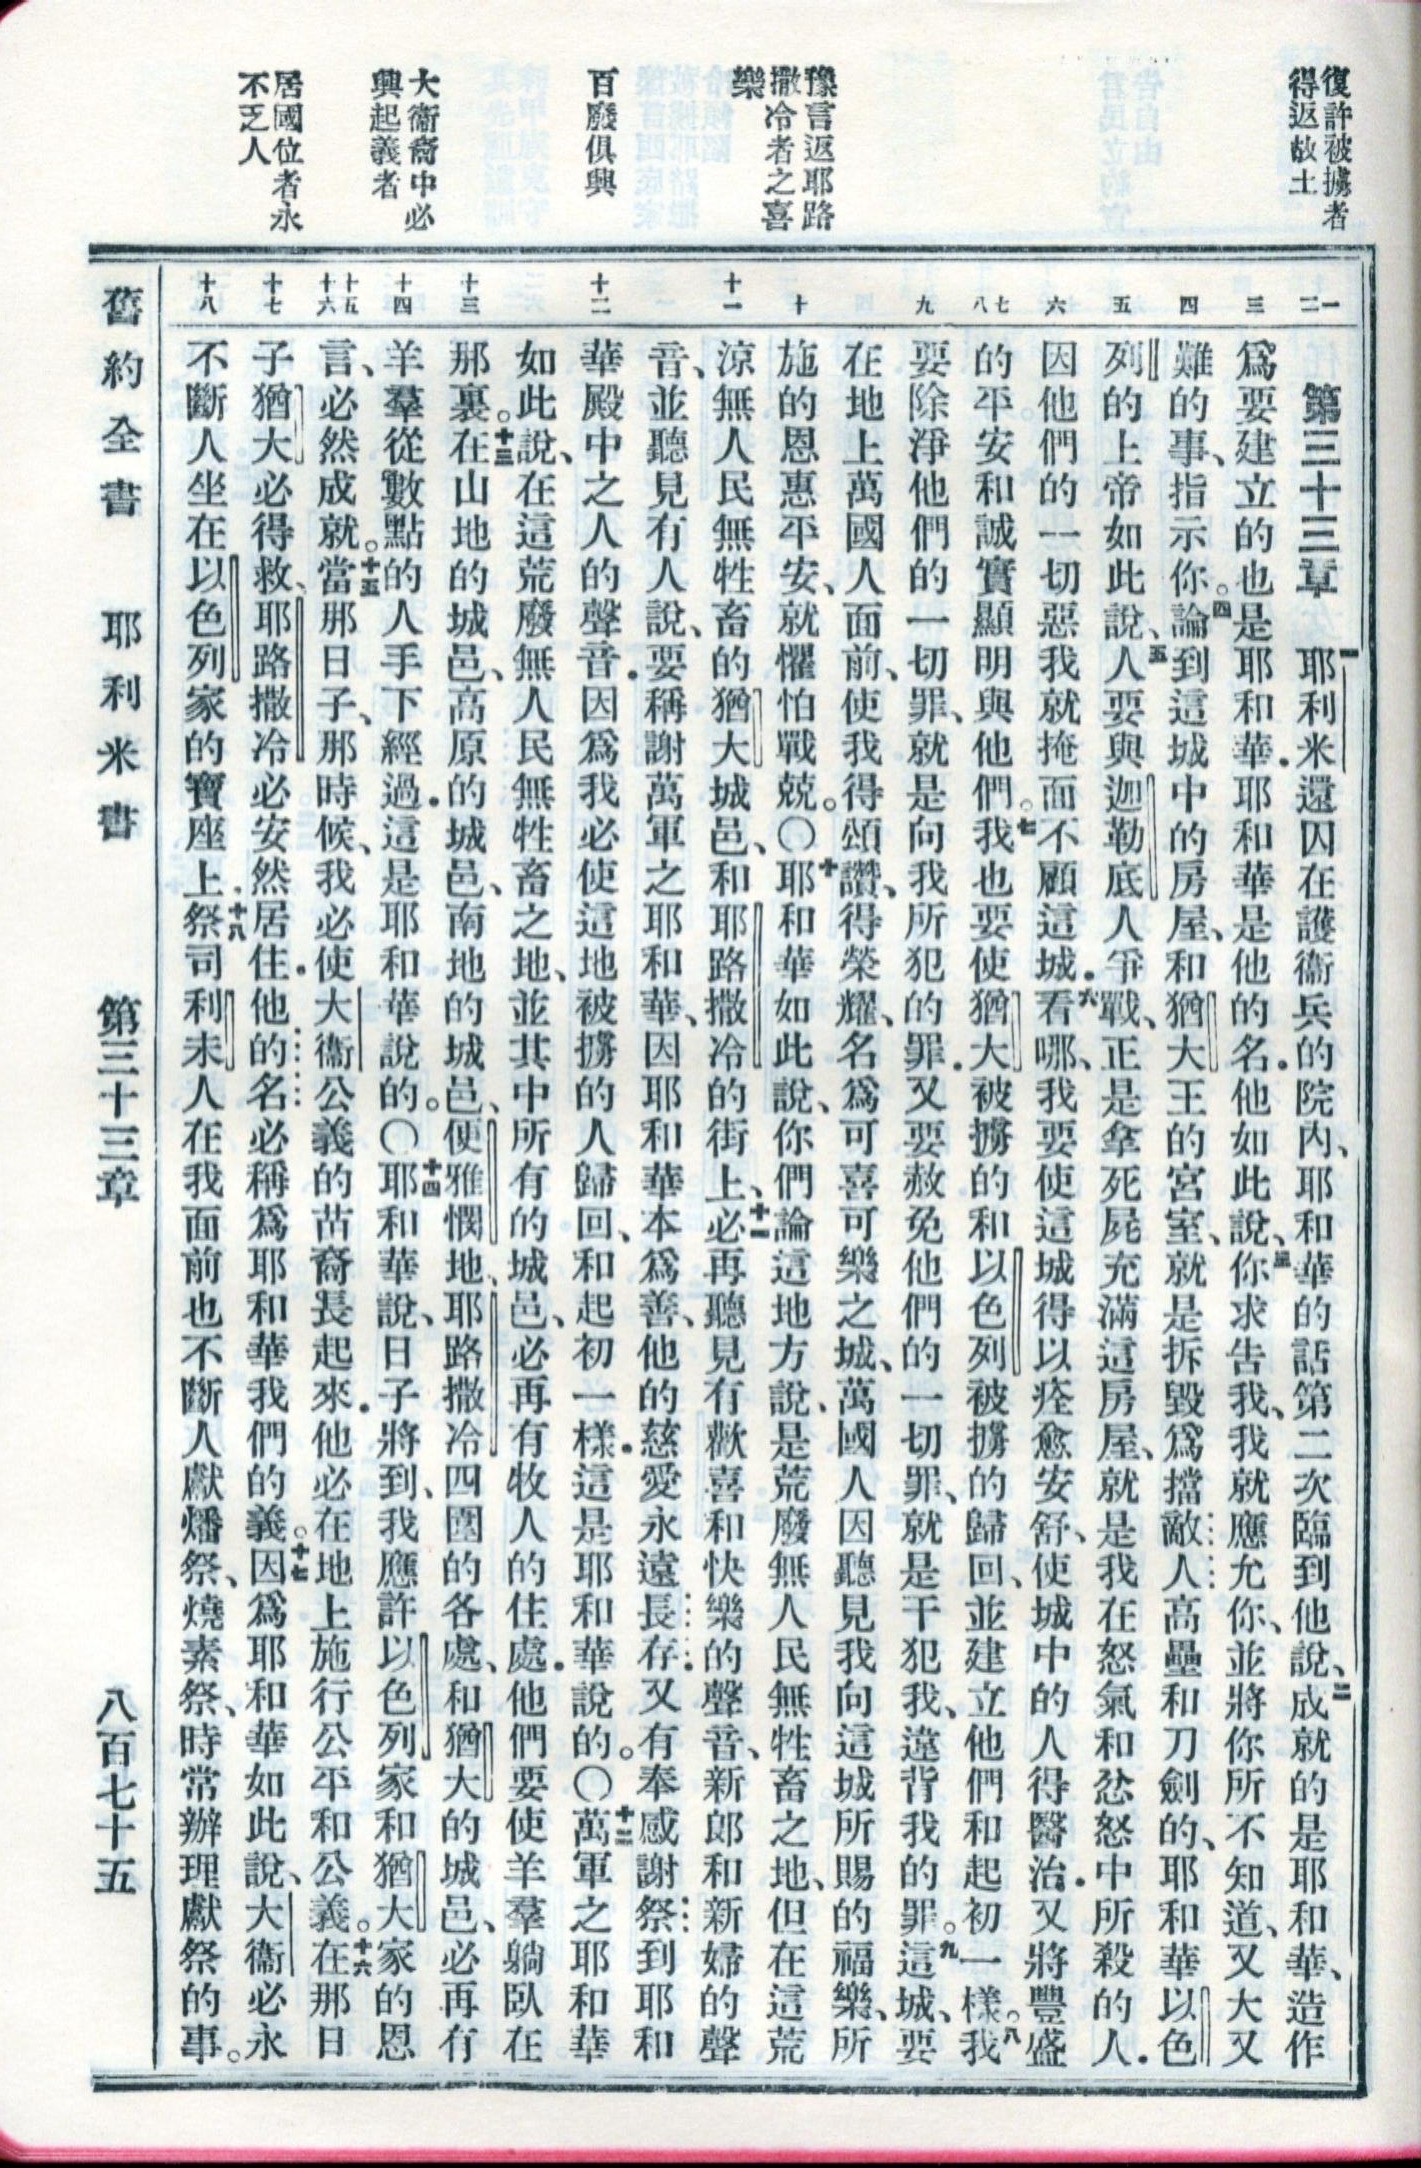 復許被擄者
得返故土
豫言返耶路
撒冷者之喜
樂
百廢俱興
大衞裔中必
興起義者
居國位者永
不乏人
一
二
三
四
五
六
七
八
九
十
十一
十二
十三
十四
十五
十六
十七
十八
第三十三章 一耶利米還囚在護衞兵的院內、耶和華的話第二次臨到他說、二成就的是耶和華、造作
爲要建立的也是耶和華．耶和華是他的名．他如此說、三你求告我、我就應允你、並將你所不知道、又大又
難的事、指示你。四論到這城中的房屋、和猶大王的宮室、就是拆毀爲擋敵人高壘和刀劍的、耶和華以色
列的上帝如此說、五人要與迦勒底人爭戰、正是拿死屍充滿這房屋、就是我在怒氣和忿怒中所殺的人．
因他們的一切惡我就掩面不顧這城．六看哪、我要使這城得以痊愈安舒、使城中的人得醫治．又將豐盛
的平安和誠實顯明與他們。七我也要使猶大被擄的和以色列被擄的歸回、並建立他們和起初一樣。八我
要除淨他們的一切罪、就是向我所犯的罪．又要赦免他們的一切罪、就是干犯我、違背我的罪。九這城、要
在地上萬國人面前、使我得頌讚、得榮耀、名爲可喜可樂之城、萬國人因聽見我向這城所賜的福樂、所
施的恩惠平安、就懼怕戰兢。〇十耶和華如此說、你們論這地方說、是荒廢無人民無牲畜之地、但在這荒
涼無人民無牲畜的猶大城邑、和耶路撒冷的街上、十一必再聽見有歡喜和快樂的聲音、新郎和新婦的聲
音、並聽見有人說、要稱謝萬軍之耶和華、因耶和華本爲善、他的慈愛永遠長存．又有奉感謝祭到耶和
華殿中之人的聲音．因爲我必使這地被擄的人歸回、和起初一樣．這是耶和華說的。〇十二萬軍之耶和華
如此說、在這荒廢無人民無牲畜之地、並其中所有的城邑、必再有牧人的住處．他們要使羊羣躺臥在
那裏。十三在山地的城邑、高原的城邑、南地的城邑、便雅憫地、耶路撒冷四圍的各處、和猶大的城邑、必再有
羊羣從數點的人手下經過．這是耶和華說的。〇十四耶和華說、日子將到、我應許以色列家和猶大家的恩
言、必然成就。十五當那日子、那時候、我必使大衞公義的苗裔長起來．他必在地上施行公平和公義。十六在那日
子猶大必得救、耶路撒冷必安然居住．他的名必稱爲耶和華我們的義。十七因爲耶和華如此說、大衞必永
不斷人坐在以色列家的寶座上．十八祭司利未人在我面前也不斷人獻燔祭、燒素祭、時常辦理獻祭的事。
舊約全書 耶利米書 第三十三章 八百七十五